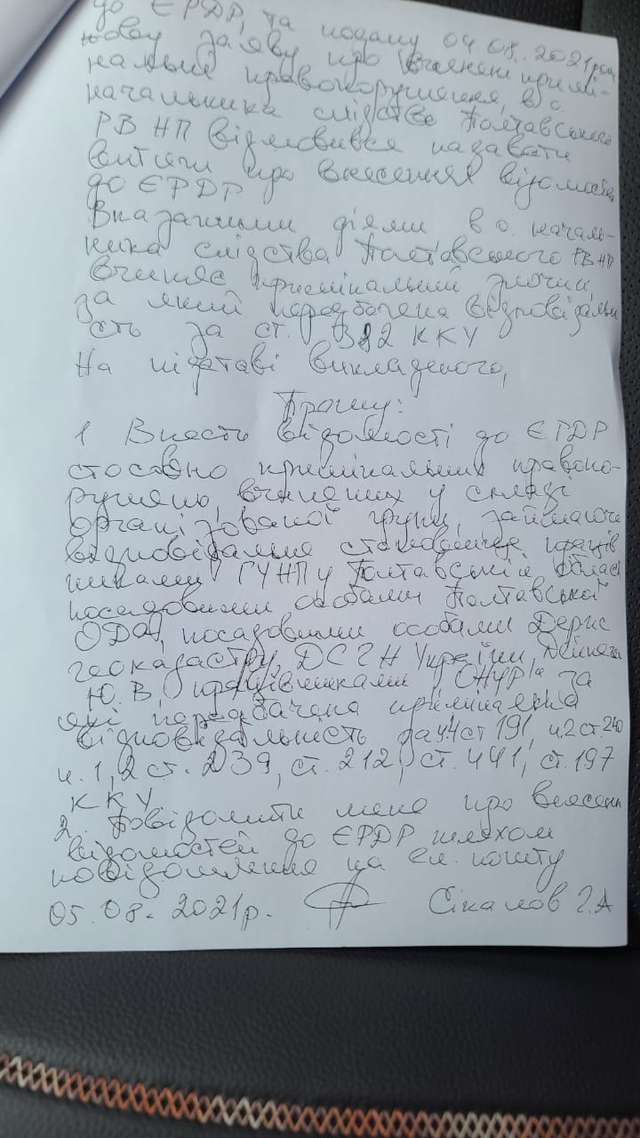 до ЄРДР, та подану 04.08.2021 року
нову заяву про вчинені кримі-
нальні правопорушення, в о
начальника слідства Полтавського
РВ НП відмовився надавати
витяги про внесення відомостей
до ЄРДР
Вказаними діями в о. началь-
ника слідства Полтавського РВ НП
вчиняє кримінальний злочин,
за який передбачена відповідальні
сть за ст. 382 ККУ
На підставі викладеного,
Прошу:
1 Внесть відомості до ЄРДР
стосовно кримінальних правопо-
рушень, вчинених у складі
організованої групи, займаючи
відповідальне становище праців
никами ГУНП у Полтавській област
посадовими особами Полтавської
ОДА, посадовими особами Держ
геокадастру, ДСГН України,
Ю. В, працівниками за
які передбачена кримінальна
відповідальність за ч4 ст 191, ч2 ст. 240
ч. 1, 2 ст. 239, ст. 212, ст. 441, ст. 197
ККУ
2. Повідомити мене про внесення
відомостей до ЄРДР шляхом
повідомлення на ел. пошту
05.08. 2021р. Сікалов Г.А